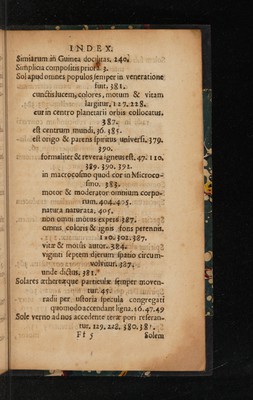 INDEX.
Simiarum in Guinea docilitas. 240.
Simplicia compositis priora 3.
Sol apud omnes populos semper in veneratione
fuit. 381.
cunctis lucem, colores, motum & vitam
largitur, 127. 228.
cur in centro planetarii orbis collocatus.
387.
est centrum mundi, 36. 385.
est origo & parens spiritus universi. 379.
390.
formaliter & revera igneus est. 47. 110.
389. 390. 392.
in macrocosmo quod cor in Microco-
smo. 388.
motor & moderator omnium corpo-
rum. 404. 405.
natura naturata, 405.
non omni motus expers 387.
omnis caloris & ignis fons perennis.
110. 302. 387.
vitæ & motus autor. 384.
viginti septem dierum spatio circum-
volvitur. 387.
unde dictus, 381.
Solares æthereæque particulæ semper moven-
tur. 45.
radii per ustoria specula congregati
quomodo accendant ligna. 16. 47. 49
Sole verno ad nos accedente terræ pori reseran-
tur. 129. 228. 380. 381.
Ff 5 Solem